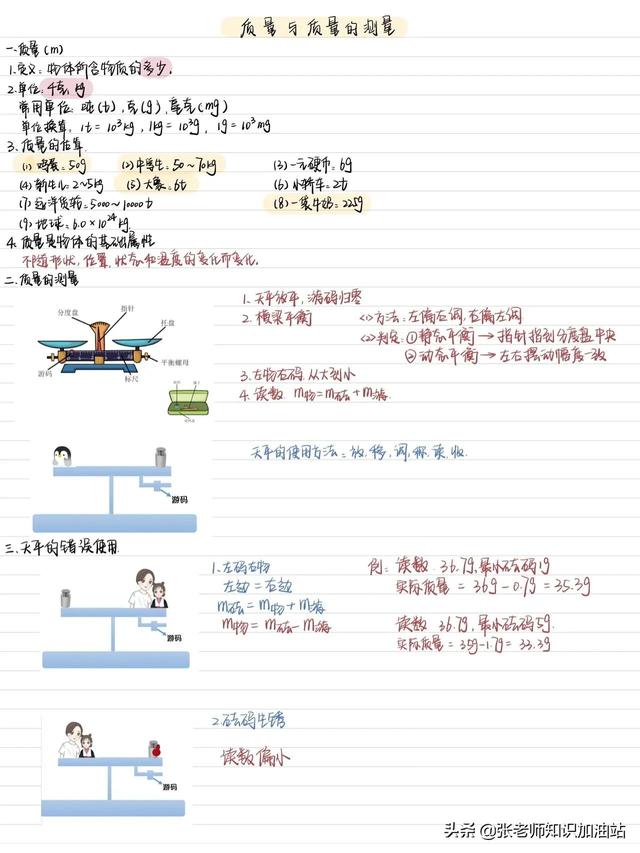 质量与质量的测量
一.质量(m)
1.定义:物体所含物质的多少.
2.单位:千克,kg
常用单位:吨(t),克(g),毫克(mg)
单位换算,1t=10³kg,1kg=10³g,1g=10³mg
3.质量的估算
(1)鸡蛋=50g (2)中学生=50~70kg (3)一元硬币=6g
(4)新生儿=2~5kg (5)大象=6t (6)小轿车=2t
(7)远洋货轮=5000~10000t (8)一袋牛奶=225g
(9)地球=6.0×10²⁴kg
4.质量是物体的基础属性
不随形状,位置,状态和温度的变化而变化.
二.质量的测量
分度盘 指针 托盘
游码 标尺 平衡螺母
1.天平放平,游码归零
2.横梁平衡 <1>方法:左偏右调,右偏左调
<2>判定:①静态平衡→指针指到分度盘中央
②动态平衡→左右摆动幅度一致
3.左物右码.从大到小
4.读数 m物=m砝+m游.
游码
天平的使用方法=放,移,调,称,读,收.
三.天平的错误使用.
游码
1.左码右物
左边=右边
m砝=m物+m游
m物=m砝-m游
例:读数 36.7g,最小砝码1g
实际质量=36g-0.7g=35.3g
读数 36.7g,最小砝码5g.
实际质量=35g-1.7g=33.3g
游码
2.砝码生锈
读数偏小
头条 @张老师知识加油站